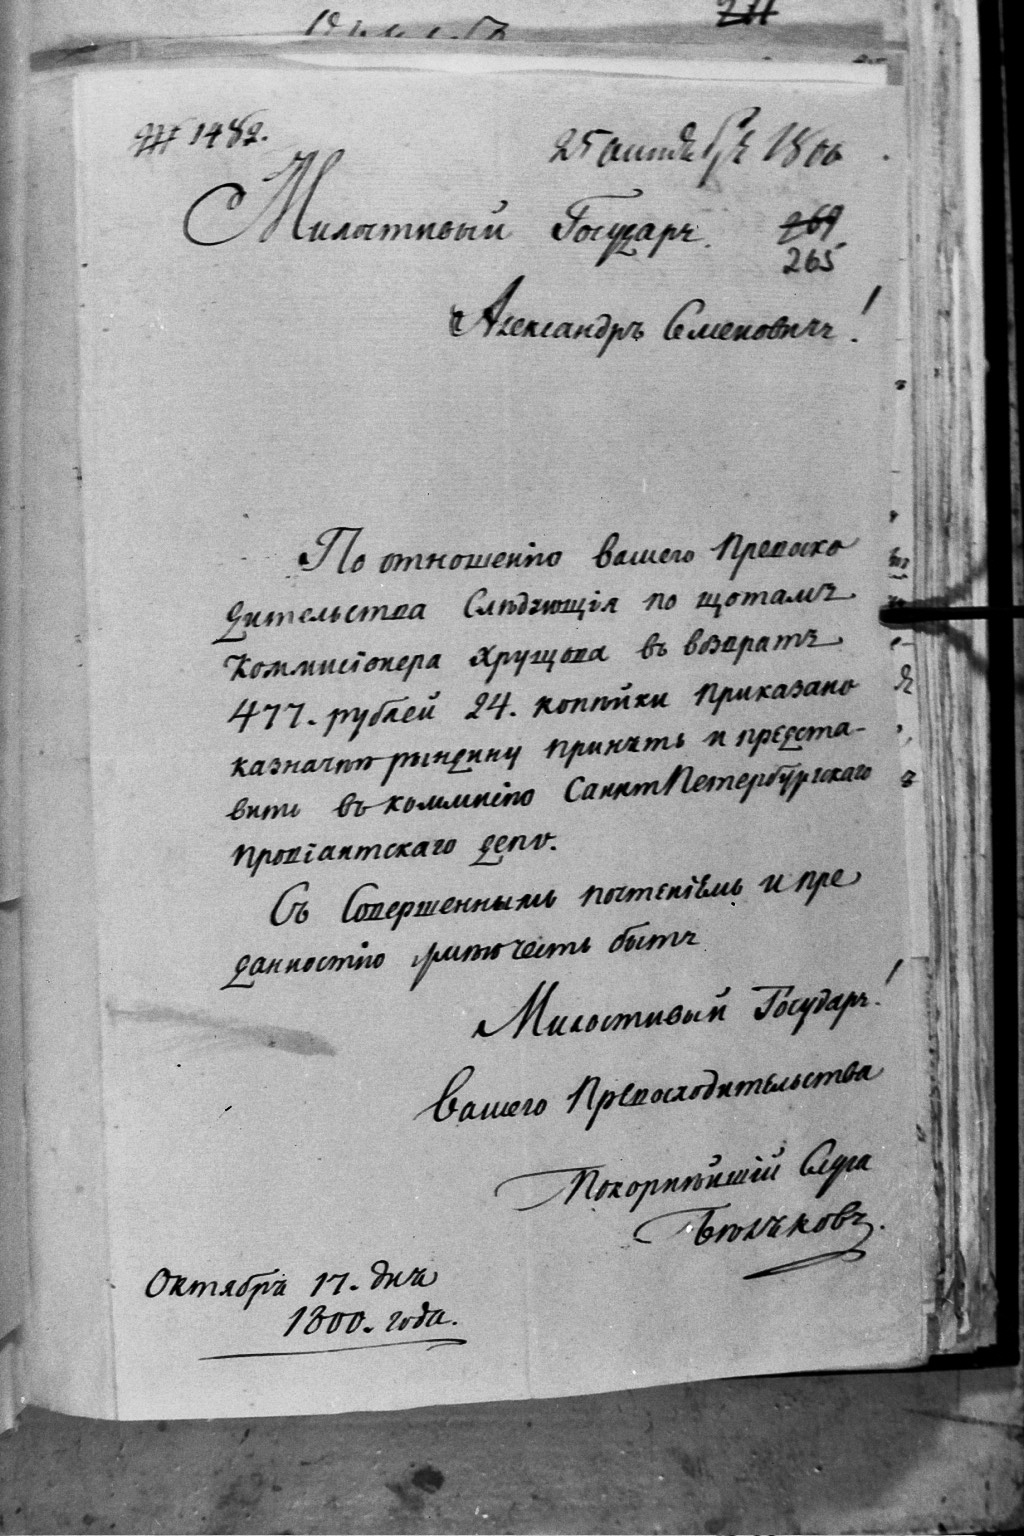 271
№ 1482.
25 октября 1800
Милостивый Государь
269
265
Александръ Семеновичъ!
По отношенію вашего превосхо
дительства Слѣдующія по щотамъ
коммисіонера Хрущова въ возвратъ
477. рублей 24. копѣйки приказано
казначею рындину принять и предста-
вить въ коммисію СанктПетербургскаго
провіантскаго депо.
Съ Совершеннымъ почтеніемъ и пре
данностію имѣю честь быть
Милостивый Государь!
вашего Превосходительства
Покорнѣйшій Слуга
Октября 17. дня
1800. года.